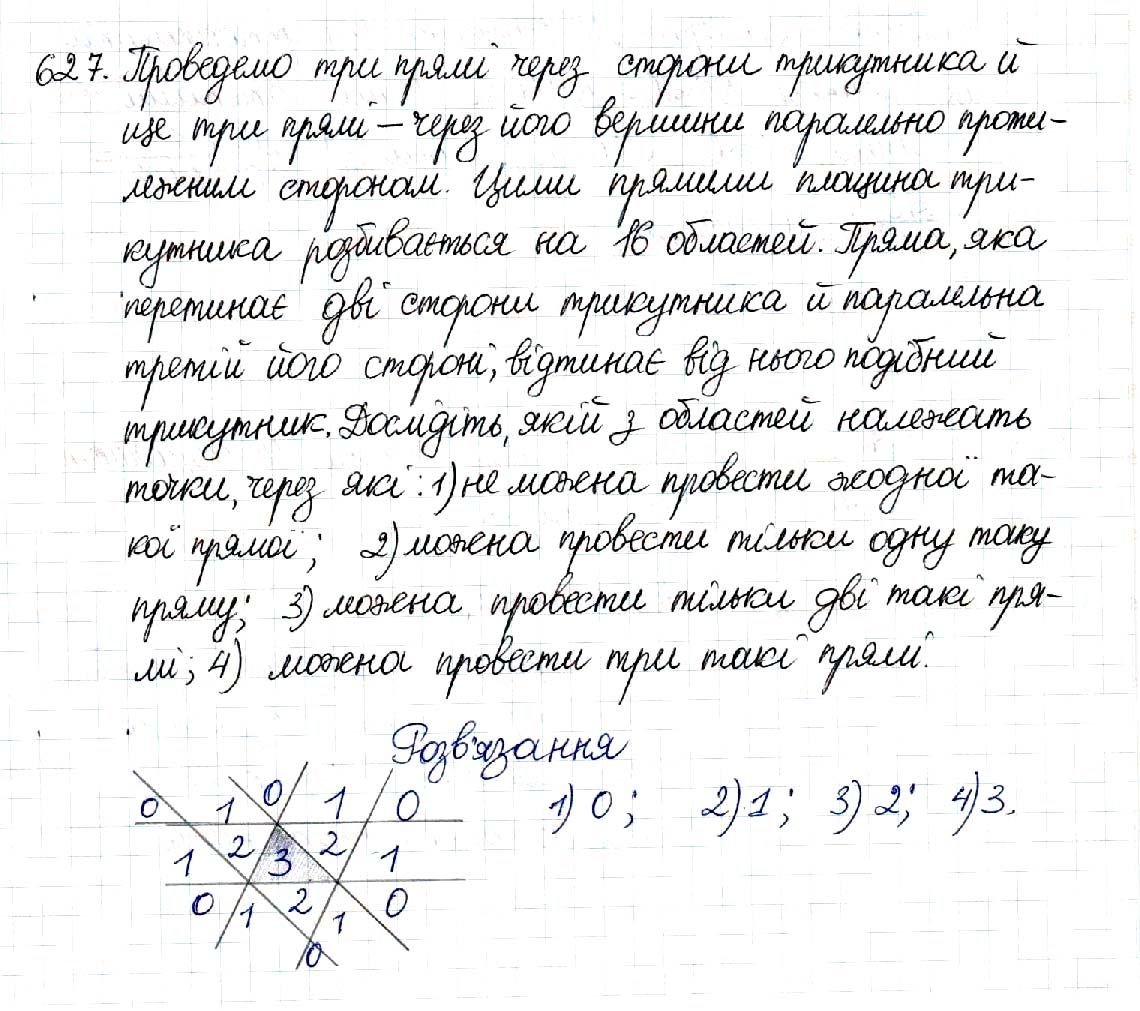 627. Проведемо три прямі через сторони трикутника й
ще три прямі — через його вершини паралельно проти-
лежним сторонам. Цими прямими площина три-
кутника розбивається на 16 областей. Пряма, яка
перетинає дві сторони трикутника й паралельна
третій його стороні, відтинає від нього подібний
трикутник. Дослідіть, якій з областей належать
точки, через які: 1) не можна провести жодної та-
кої прямої; 2) можна провести тільки одну таку
пряму; 3) можна провести тільки дві такі пря-
мі; 4) можна провести три такі прямі.
Розв'язання
0 1 0 1 0
1) 0; 2) 1; 3) 2; 4) 3.
1 2 3 2 1
0 1 2 1 0
0